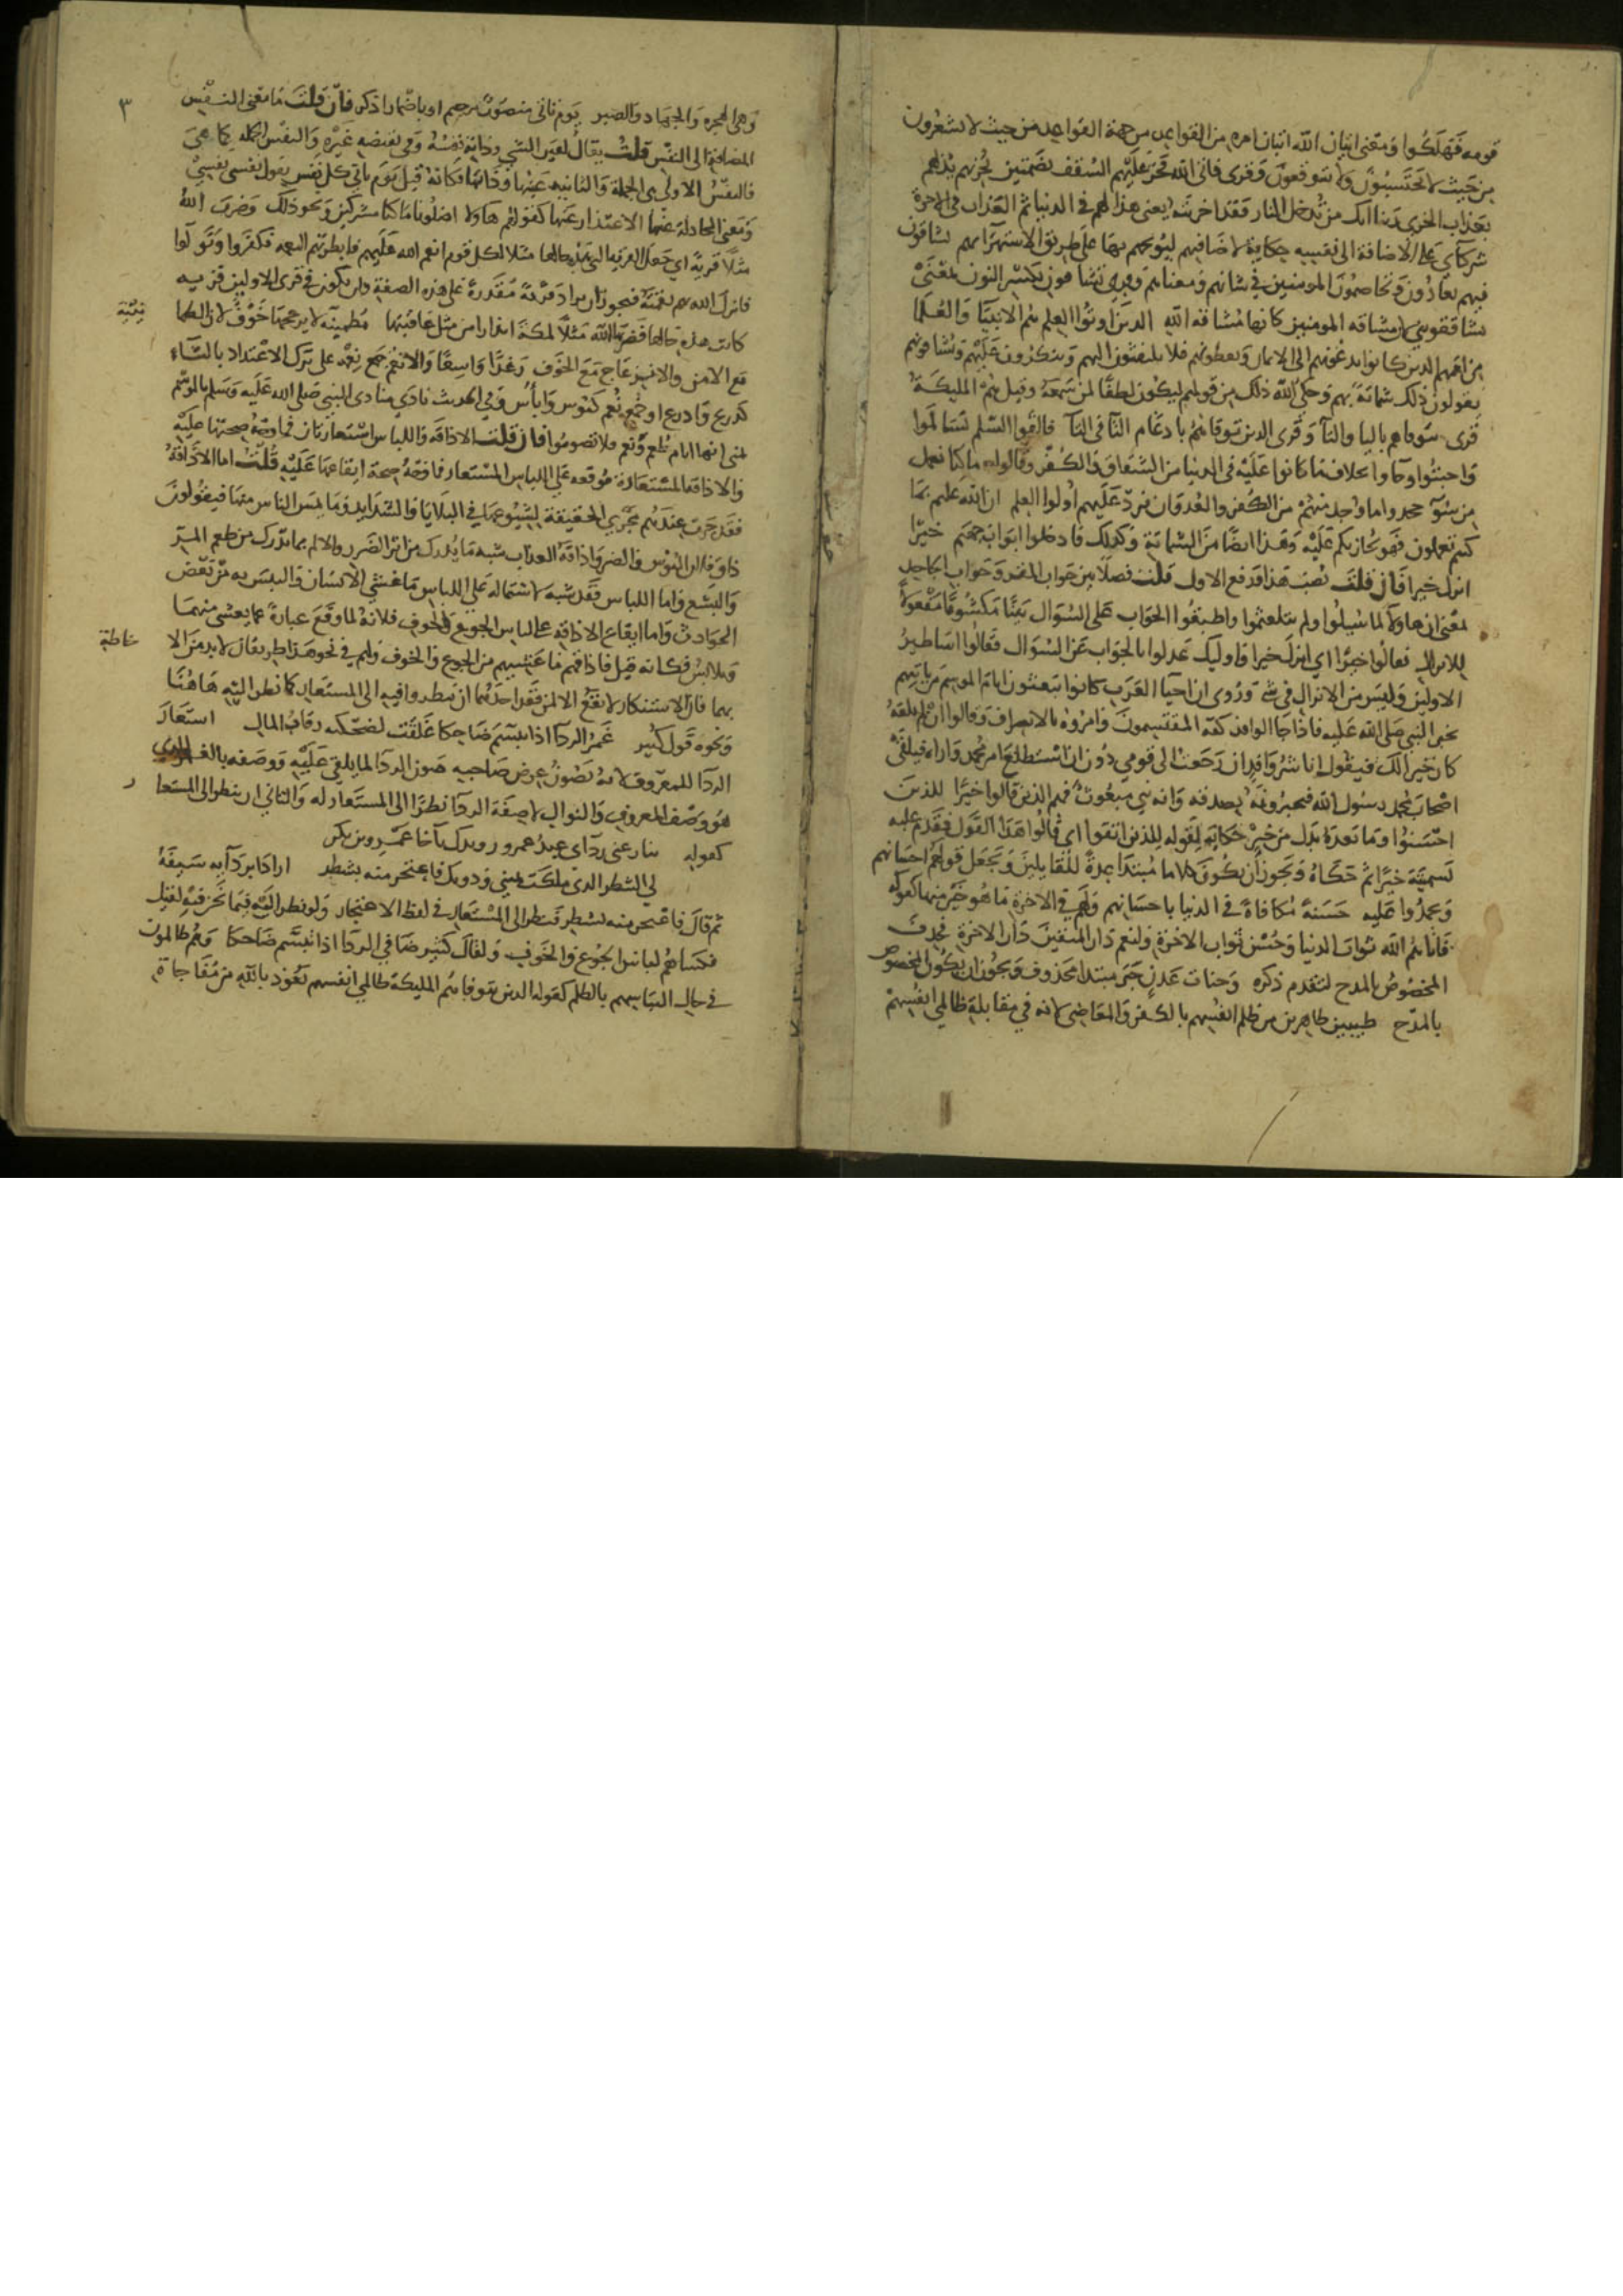 قومه فهلكوا ومعنى اتيان الله اتيان امره من القواعد من جهة القواعد من حيث لا يشعرون
من حيث لا يحتسبون ولا يتوقعون وقرى فاتى الله فخر عليهم السقف بضمتين يخزيهم يذلهم
بعذاب الخزى ربنا انك من تدخل النار فقد اخزيته يعنى هذا لهم فى الدنيا ثم العذاب فى الاخرة
شركآى على الاضافة الى نفسه حكاية لاضافتهم ليوبخهم بها على طريق الاستهزا بهم تشاقون
فيهم تعادون وتخاصمون المومنين فى شانهم ومعناهم وقرى تشاقون بكسر النون بمعنى
تشاققوننى لان مشاقه المومنين كانها مشاقه الله الذين اوتوا العلم هم الانبيا والعلما
من اممهم الذين كانوا يدعونهم الى الايمان ويعظونهم فلا يلتفتون اليهم ويتكبرون عليهم ويشاقونهم
يقولون ذلك شماتة بهم وحكى الله ذلك من قولهم ليكون لطفا لمن سمعه وقيل هم المليكة
قرى تتوفاهم باليا والتآ وقرى الذين توفاهم بادغام التآ فى التآ فالقوا السلم فسالموا
واخبتوا وجاوا بخلاف ما كانوا عليه فى الدنيا من الشقاق والكفر وقالوا ما كنا نعمل
من سوء جحدوا ما وجد منهم من الكفر والعدوان فرد عليهم اولوا العلم ان الله عليم بما
كنتم تعملون فهو يجازيكم عليه وهذا ايضا من الشماتة وكذلك فادخلوا ابواب جهنم خيرا
انزل خيرا فان قلت نصب هذا ورفع الاول قلت فصلا بين جواب المقر وجواب الجاحد
يعنى ان هاولا لما سيلوا ولم يتلعثموا واطبقوا الجواب على السوال بينا مكشوفا مفعولا
للانزال فقالوا خيرا اى انزل خيرا واوليك عدلوا بالجواب عن السوال فقالوا اساطير
الاولين وليس من الانزال فى شى وروى ان احيا العرب كانوا يبعثون ايام الموسم من ياتيهم
بخبر النبى صلى الله عليه فاذا جا الوافد كفه المقتسمون وامروه بالانصراف وقالوا ان لم تلقه
كان خيرا لك فيقول انا شر وافد ان رجعت الى قومى دون ان استطلع امر محمد واراه فيلقى
اصحاب محمد رسول الله فيخبرونه بصدقه وانه نبى مبعوث فهم الذين قالوا خيرا للذين
احسنوا وما بعده بدل من خيرا حكاية لقوله للذين اتقوا اى قالوا هذا القول فقدم عليه
تسميته خيرا ثم حكاه ويجوز ان يكون كلاما مبتدا عدة للقايلين ويجعل قولهم احسانهم
وحمدوا عليه حسنة مكافاة فى الدنيا باحسانهم ولهم فى الاخرة ما هو خير منها كقوله
فاتاهم الله ثواب الدنيا وحسن ثواب الاخرة ولنعم دار المتقين دار الاخرة فحذف
المخصوص بالمدح لتقدم ذكره وجنات عدن خبر مبتدا محذوف ويجوز ان يكون المخصوص
بالمدح طيبين طاهرين من ظلم انفسهم بالكفر والمعاصى لانه فى مقابلة ظالمى انفسهم
٣
وهى الهجرة والجهاد والصبر يوم تاتى منصوب برحيم او باضمار اذكر فان قلت ما معنى النفس
المضافة الى النفس قلت يقال لعين الشى وذاته نفسه وفى نقيضه غيره والنفس الجملة كما هى
فالنفس الاولى هى الجملة والثانيه عينها وذاتها فكانه قيل يوم ياتى كل نفس يقول نفسى نفسى
ومعنى المجادلة عنها الاعتذار عنها كقولهم هاولا اضلونا ما كنا مشركين ونحو ذلك وضرب الله
مثلا قرية اى جعل القرية التى هذه حالها مثلا لكل قوم انعم الله عليهم فابطرتهم النعمه فكفروا وتولوا
فانزل الله بهم نقمته فيجوز ان يراد قرية مقدرة على هذه الصفة وان تكون فى قرى الاولين قريه
كانت هذه حالها فضربها الله مثلا لمكة انذارا من مثل عاقبتها مطمينه لا يزعجها خوف لان الطما
نينة
مع الامن والانزعاج مع الخوف رغدا واسعا والانعم جمع نعمة على ترك الاعتداد بالتاء
كدرع وادرع او جمع نعم كبوس وابأس وفى الحديث نادى منادى النبى صلى الله عليه وسلم بالموسم
بمنى انها ايام طعم ونعم فلا تصوموا فان قلت الاذاقة واللباس استعارتان فما وجه صحتهما عليه
والاذاقة المستعارة موقعه على اللباس المستعار فما وجه صحة ايقاعها عليه قلت اما الاذاقة
فقد جرت عندهم مجرى الحقيقة لشيوعها فى البلايا والشدايد وما يمس الناس منها فيقولون
ذاق فلان البوس والضر واذاقه العذاب شبه ما يدرك من اثر الضرر والالم بما يدرك من طعم المر
والبشع واما اللباس فقد شبه لاشتماله على اللابس ما غشى الانسان والتبس به من بعض
الحوادث واما ايقاع الاذاقه على لباس الجوع والخوف فلانه لما وقع عبارة عما يغشى منهما
ويلابس فكانه قيل فاذاقهم ما غشيهم من الجوع والخوف ولهم فى نحو هذا طريقان لا بد من الا
حاطة
بهما فان الاستنكار لا يقع الا لمن فقدهما احدهما ان ينظروا فيه الى المستعار له كما نظر اليه هاهنا
ونحوه قول كثير غمر الردآ اذا تبسم ضاحكا غلقت لضحكته رقاب المال استعار
الردآ للمعروف لانه يصون عرض صاحبه صون الردآ لما يلقى عليه ووصفه بالغمر الذى
هو وصف المعروف والنوال لا صفة الردآ نظرا الى المستعار له والثانى ان ينظر الى المستعا
ر
كقوله ينازعنى ردآى عبد عمرو رويدك يآ اخا عمرو بن بكر
لى الشطر الذى ملكت يمينى ودونك فاعتجر منه بشطر اراد بردآيه سيفه
ثم قال فاعتجر منه بشطر فنظر الى المستعار فى لفظ الاعتجار ولو نظر اليه فيما نحن فيه لقيل
فكساهم لباس الجوع والخوف ولقال كثير ضافى الردآ اذا تبسم ضاحكا وهم ظالمون
فى حال التباسهم بالظلم كقوله الذين تتوفاهم المليكة ظالمى انفسهم نعوذ بالله من مفاجاة